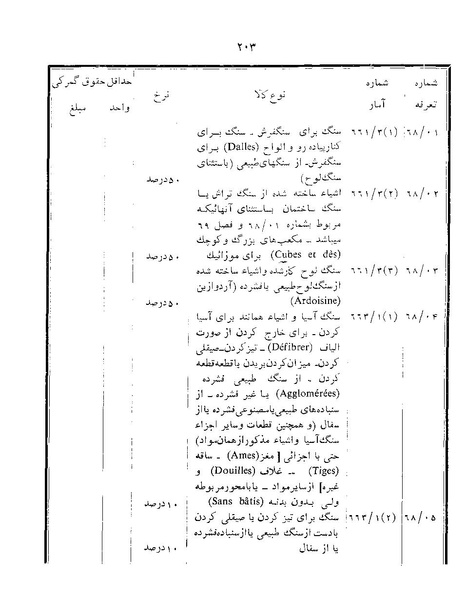 ۲۰۳
شماره تعرفه
شماره آمار
نوع کالا
نرخ
حداقل حقوق گمرکی
واحد
مبلغ
۶۸/۰۱
۶۶۱/۳(۱)
سنگ برای سنگفرش ـ سنگ برای
کنار پیاده رو و الواح (Dalles) برای
سنگفرش ـ از سنگهای طبیعی (باستثنای
سنگ لوح)
۵۰ درصد
۶۸/۰۲
۶۶۱/۳(۲)
اشیاء ساخته شده از سنگ تراش یا
سنگ ساختمان باستثنای آنهائیکه
مربوط بشماره ۶۸/۰۱ و فصل ۶۹
میباشد ـ مکعب‌های بزرگ و کوچک
(Cubes et dès) برای موزائیک
۵۰ درصد
۶۸/۰۳
۶۶۱/۳(۳)
سنگ لوح کار شده و اشیاء ساخته شده
از سنگ لوح طبیعی یا فشرده (آردوازین
(Ardoisine)
۵۰ درصد
۶۸/۰۴
۶۶۳/۱(۱)
سنگ آسیا و اشیاء همانند برای آسیا
کردن ـ برای خارج کردن از صورت
الیاف (Défibrer) ـ تیز کردن ـ صیقلی
کردن ـ میزان کردن بریدن یا قطعه قطعه
کردن ـ از سنگ طبیعی فشرده
(Agglomérées) یا غیر فشرده ـ از
سنباده‌های طبیعی یا مصنوعی فشرده یا از
سفال (و همچنین قطعات و سایر اجزاء
سنگ آسیا و اشیاء مذکور از همان مواد)
حتی با اجزائی [مغز (Ames) ـ ساقه
(Tiges) ـ غلاف (Douilles) و
غیره] از سایر مواد ـ یا با محور مربوطه
ولی بدون بدنه (Sans bâtis)
۱۰ درصد
۶۸/۰۵
۶۶۳/۱(۲)
سنگ برای تیز کردن یا صیقلی کردن
با دست از سنگ طبیعی یا از سنباده فشرده
یا از سفال
۱۰ درصد